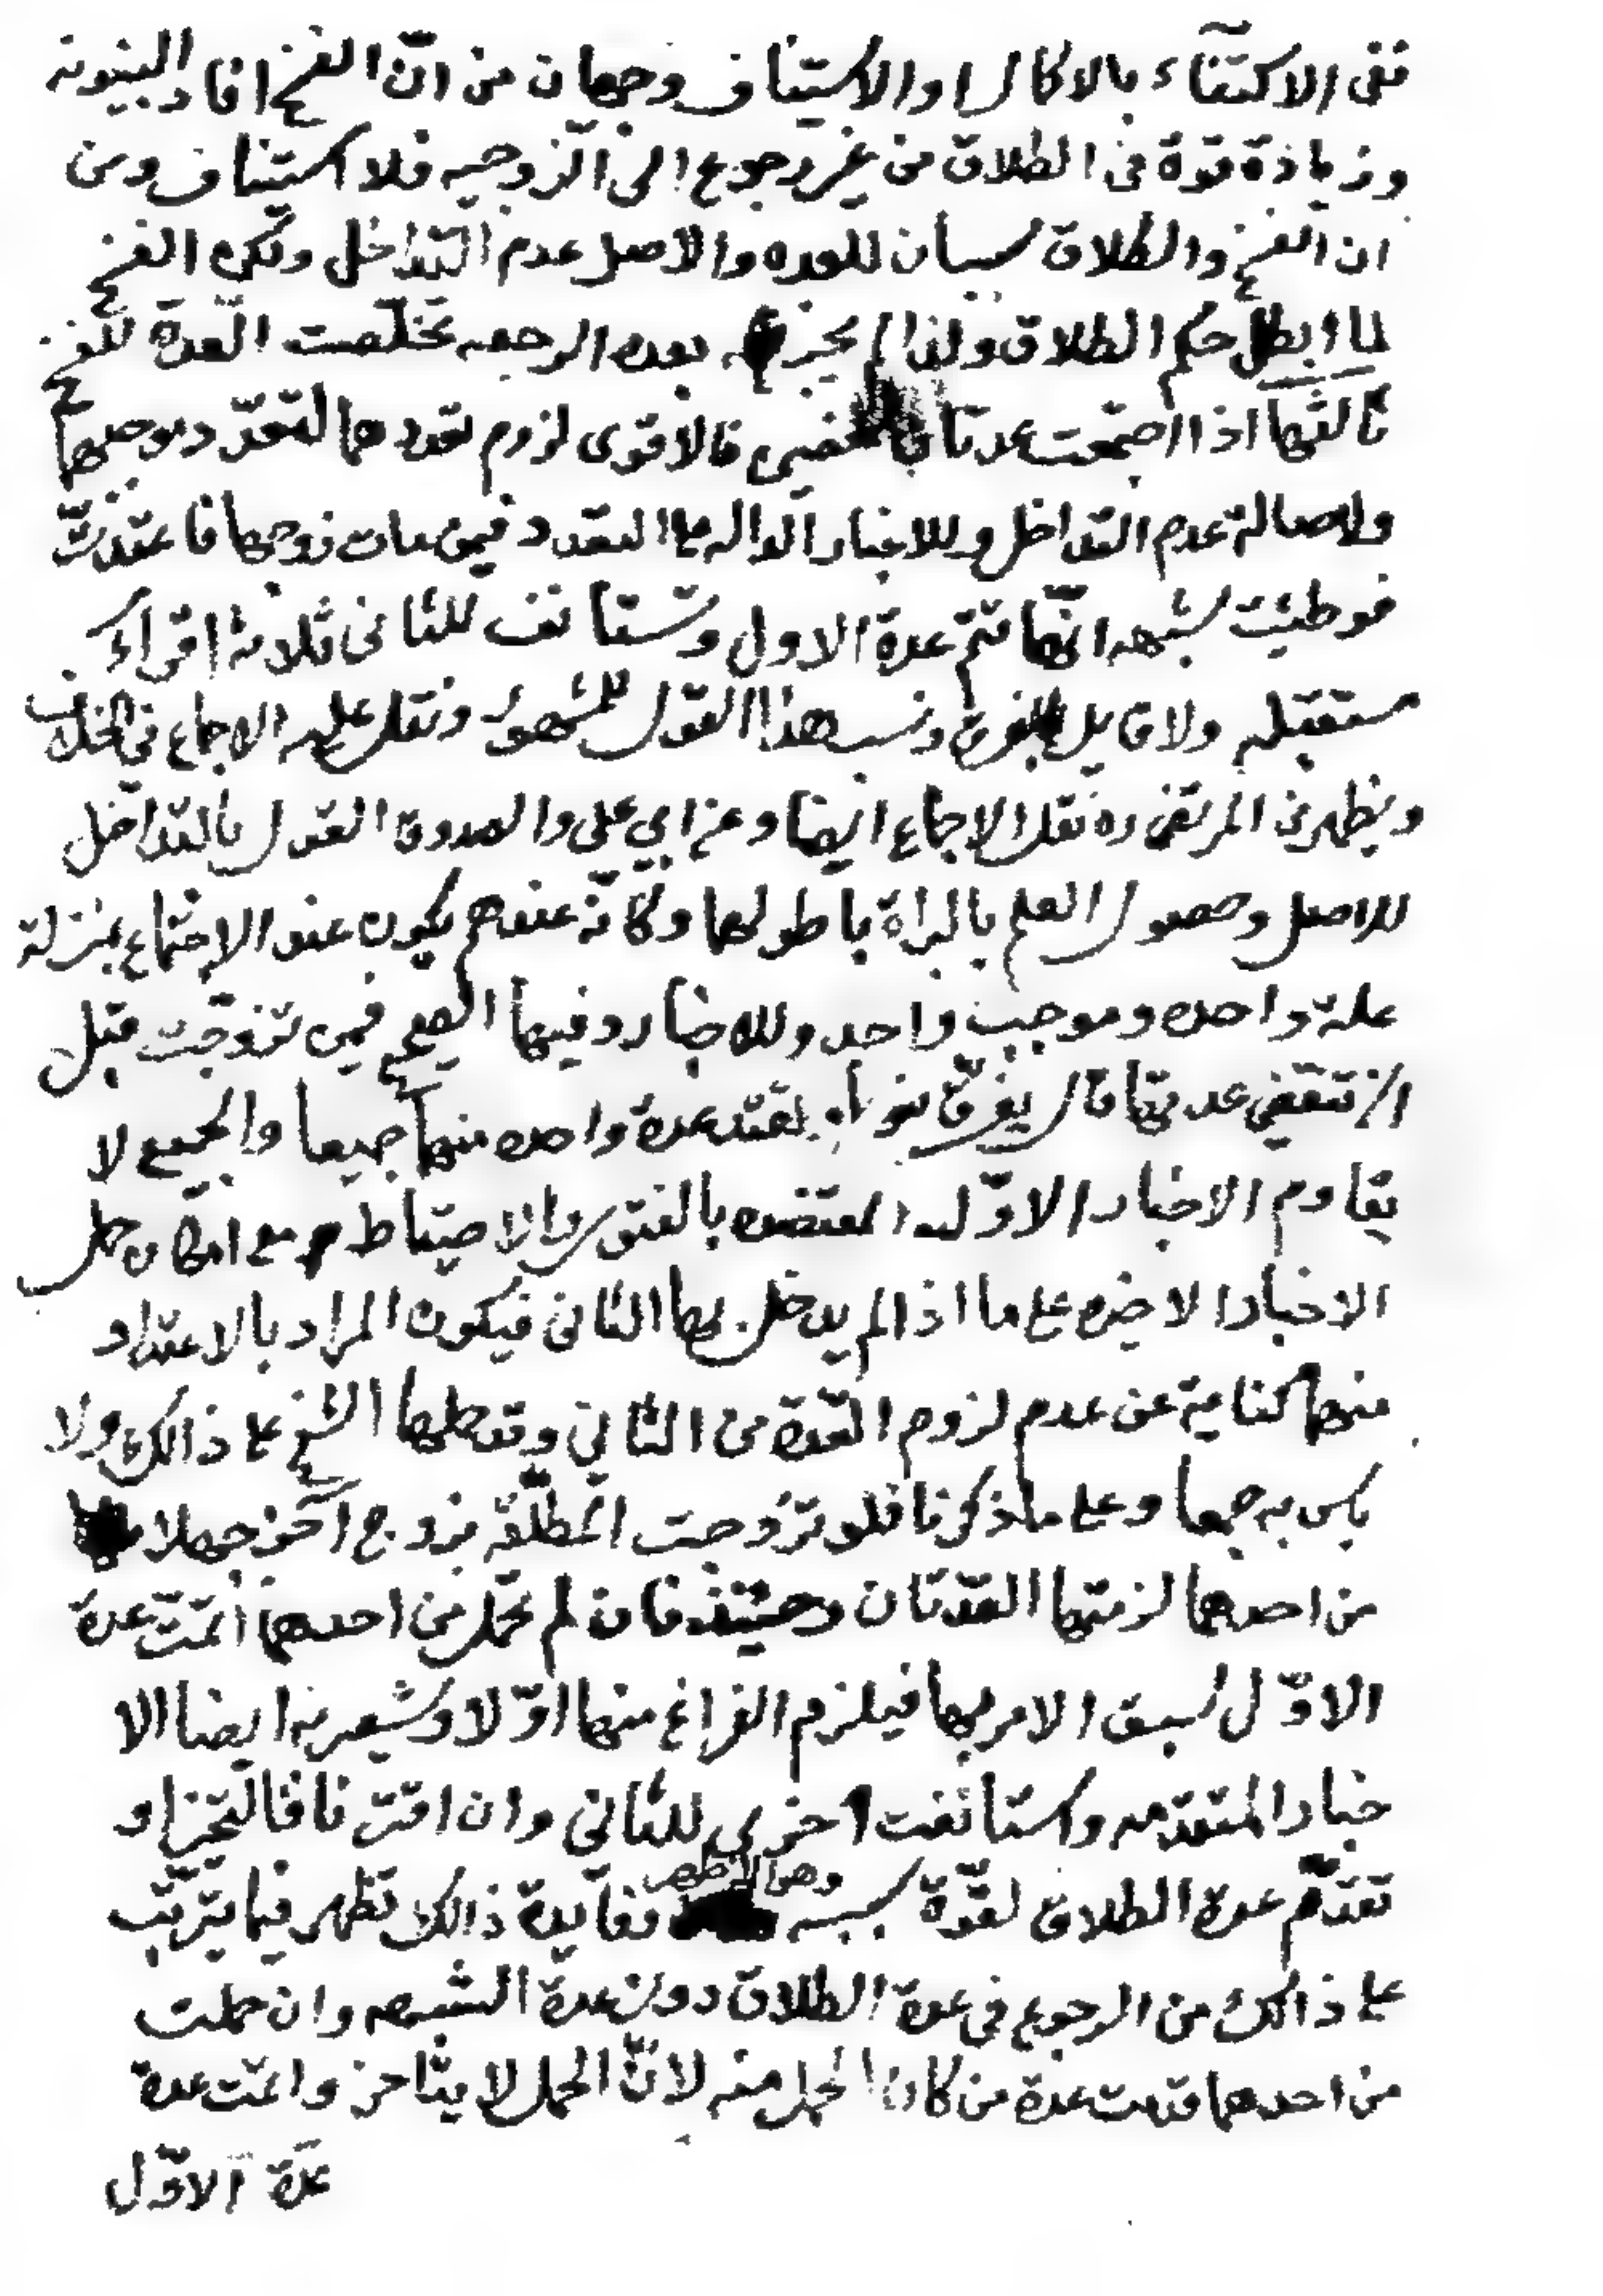 ففى الاكتفاء بالاكمال او الاستيناف وجهان من ان الفسخ افاد البينونة
وزيادة قوة فى الطلاق من غير رجوع الى الزوجيه فلا استيناف ومن
ان الفسخ والطلاق سببان للعده والاصل عدم التداخل ولكن الفسخ
لما ابطل حكم الطلاق ولذا لم يجز بعده الرجعه تخلصت العدة للفسخ
ثالثها اذا اجتمعت عدتان فالاقوى لزوم تعددهما لتعدد موجبهما
ولاصالة عدم التداخل وللاخبار الداله على التعدد فيمن مات زوجها فاعتدت
فوطئت لشبهه انها تتم عدة الاول وتستانف للثانى ثلاثة اقراء
مستقبله ولا قايل بالفرق ونسب هذا القول للمشهور ونقل عليه الاجماع فى الخلاف
ويظهر من المرتضى ره نقل الاجماع ايضا وعن ابي علي والصدوق القول بالتداخل
للاصل وحصول العلم بالبراة باطولهما وكانه عندهم يكون عند الاجتماع بمنزلة
علة واحده وموجب واحد وللاخبار وفيها الصحيح فيمن تزوجت قبل
ان تنقضي عدتها قال يفرق بينهما وتعتد عدة واحده منهما جميعا والجميع لا
يقاوم الاخبار الاوله المعتضده بالفتوى والاحتياط مع امكان حمل
الاخبار الاخيره على ما اذا لم يدخل بها الثانى فيكون المراد بالاعتداد
منهما كناية عن عدم لزوم العدة من الثاني وقد حملها الشيخ على ذالك ولا
باس به جمعا وعلى ما ذكرنا فلو تزوجت المطلقه بزوج آخر جهلا
من احدهما لزمتها العدتان وحينئذ فان لم تحمل من احدهما اتمت عدة
الاول لسبق الامر بها فيلزم الفراغ منها اولا وتشعر به ايضا الا
خبار المتقدمه واستانفت اخرى للثانى وان اقترنا فالتخير او
تقدم عدة الطلاق لقوة سببه وهى الاظهر وفايدة ذالك تظهر فيما يترتب
على ذالك من الرجوع فى عدة الطلاق دون عدة الشبهه وان حملت
من احدهما قدمت عدة من كان الحمل منه لان الحمل لا يتاخر واتمت عدة
عدة الاول